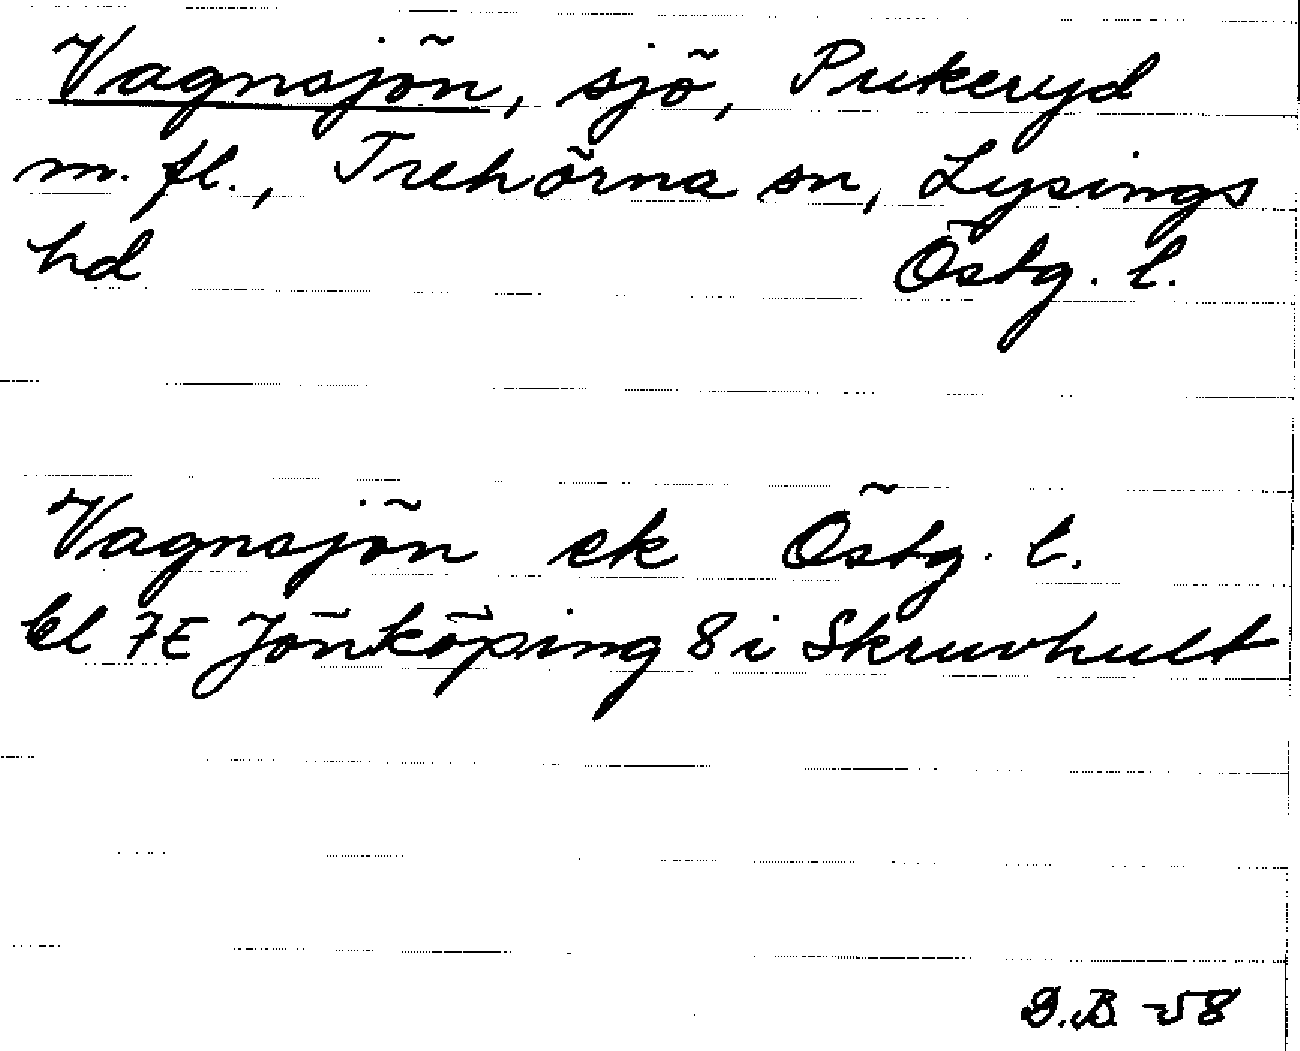 Vagnsjön, sjö, Pukeryd
m. fl., Trehörna sn, Lysings
hd Östg. l.
Vagnsjön ek Östg. l.
bl 7E Jönköping 8 i Skruvhult
G.B -58